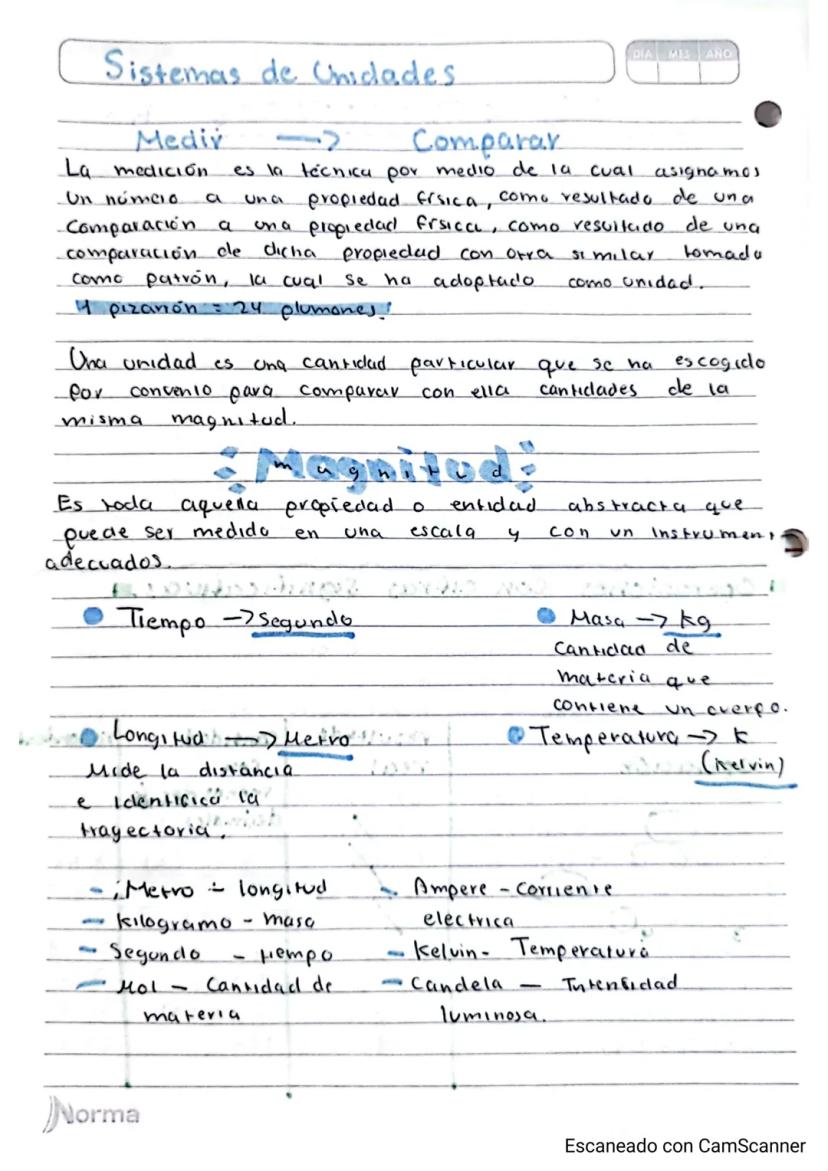 Sistemas de Unidades
DÍA MES AÑO
Medir —> Comparar
La medición es la técnica por medio de la cual asignamos
un número a una propiedad física, como resultado de una
Comparación a una propiedad física, como resultado de una
comparación de dicha propiedad con otra similar tomada
como patrón, la cual se ha adoptado como unidad.
1 pizarrón = 24 plumones!
Una unidad es una cantidad particular que se ha escogido
por convenio para comparar con ella cantidades de la
misma magnitud.
Magnitud
Es toda aquella propiedad o entidad abstracta que
puede ser medido en una escala y con un instrumen
adecuados.
Tiempo —> Segundo
Masa —> kg
Cantidad de
materia que
contiene un cuerpo.
Longitud —> Metro
Mide la distancia
e identifica la
trayectoria.
Temperatura —> K
(Kelvin)
- ¡Metro - longitud
- Kilogramo - masa
- Segundo - tiempo
- Mol - Cantidad de
materia
- Ampere - Corriente
eléctrica
- Kelvin - Temperatura
- Candela - Intensidad
luminosa.
Norma
Escaneado con CamScanner